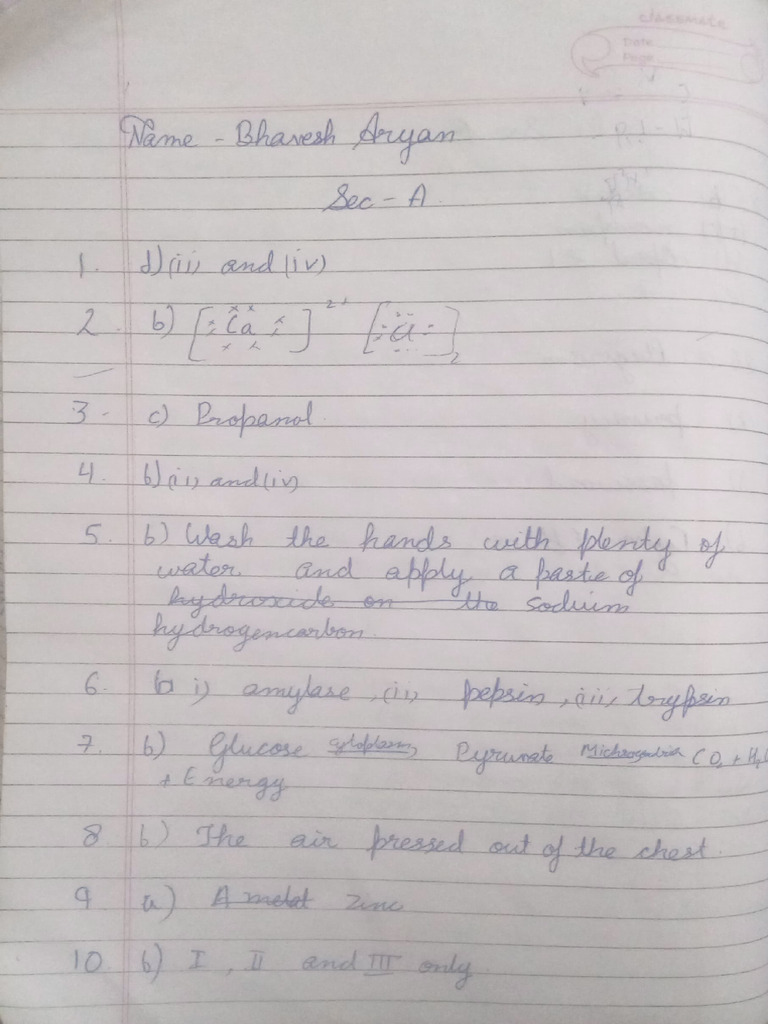 classmate
Date
Page
Name - Bhavesh Aryan
Sec - A
1. d) (iii) and (iv)
2. b) [Ca]2+ [Cl]2
3. c) Propanol
4. b) (ii) and (iv)
5. b) Wash the hands with plenty of
water and apply a paste of
hydroxide on the sodium
hydrogencarbon
6. b i) amylase, (ii) pepsin, (iii) trypsin
7. b) Glucose cytoplasm Pyruvate CO2 + H2O
+ Energy
8 b) The air pressed out of the chest
9 a) A metal Zinc
10 b) I, II and III only